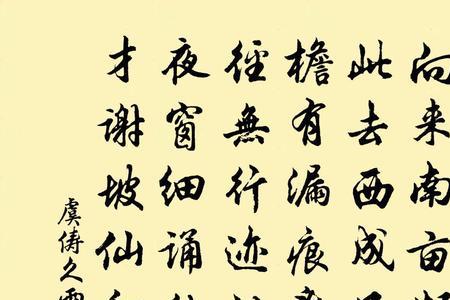 向来南亩
此去西成
檐有漏痕
徑無行迹
夜窗细诵
才谢坡仙
虞俦久